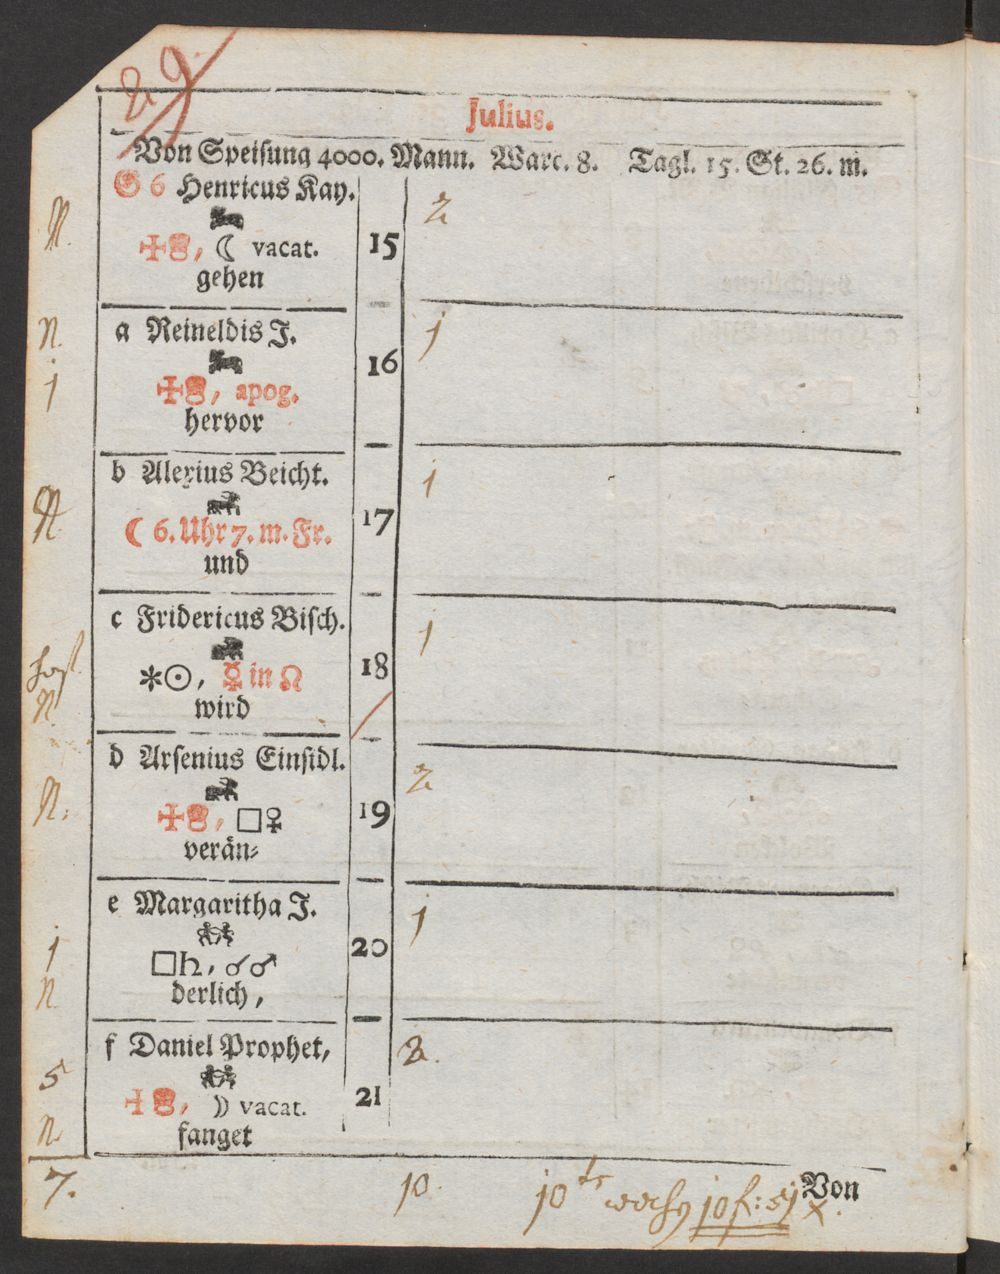 29.
Julius.
Von Speisung 4000. Mann. Marc. 8. Tagl. 15. St. 26. m.
G 6 Henricus Kay.
N.
15
2
☾ vacat.
gehen
a Reineldis J.
N.
16
1
apog.
j
hervor
b Alexius Beicht.
N.
17
1
☾ 6. Uhr 7. m. Fr.
und
c Fridericus Bisch.
18
1
✻☉, ☿ in ☊
N.
wird
d Arsenius Einsidl.
N.
19
2
□♀
verän⸗
e Margaritha J.
20
1
j
□♄, ☌♂
n.
derlich,
f Daniel Prophet,
2.
5
21
☽ vacat.
n.
fanget
7.
10.
10 ts
10 f: 51 x.
Von